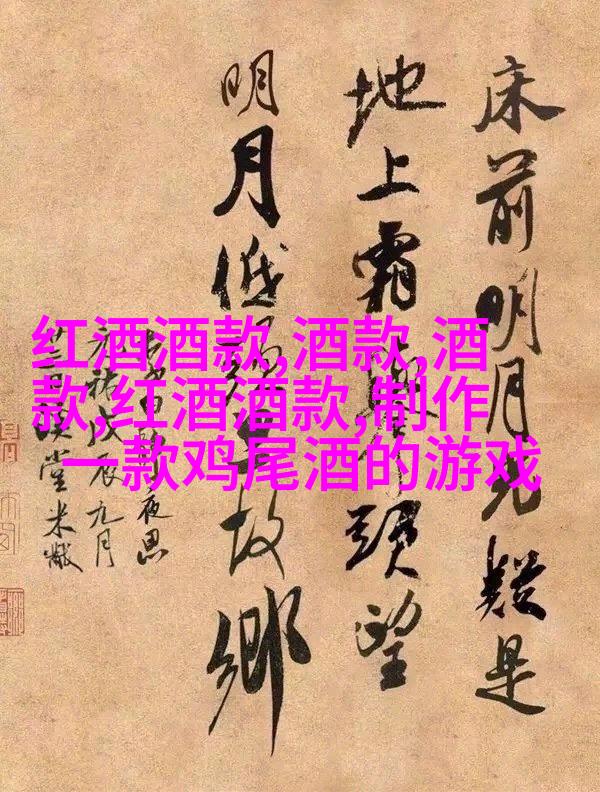 床前明月光疑是
地上霜頭望
明月低頭思故鄉
夜思
元祐戊辰九月
堂米黻
红酒酒款,酒款,酒
款,红酒酒款,制作
一款鸡尾酒的游戏